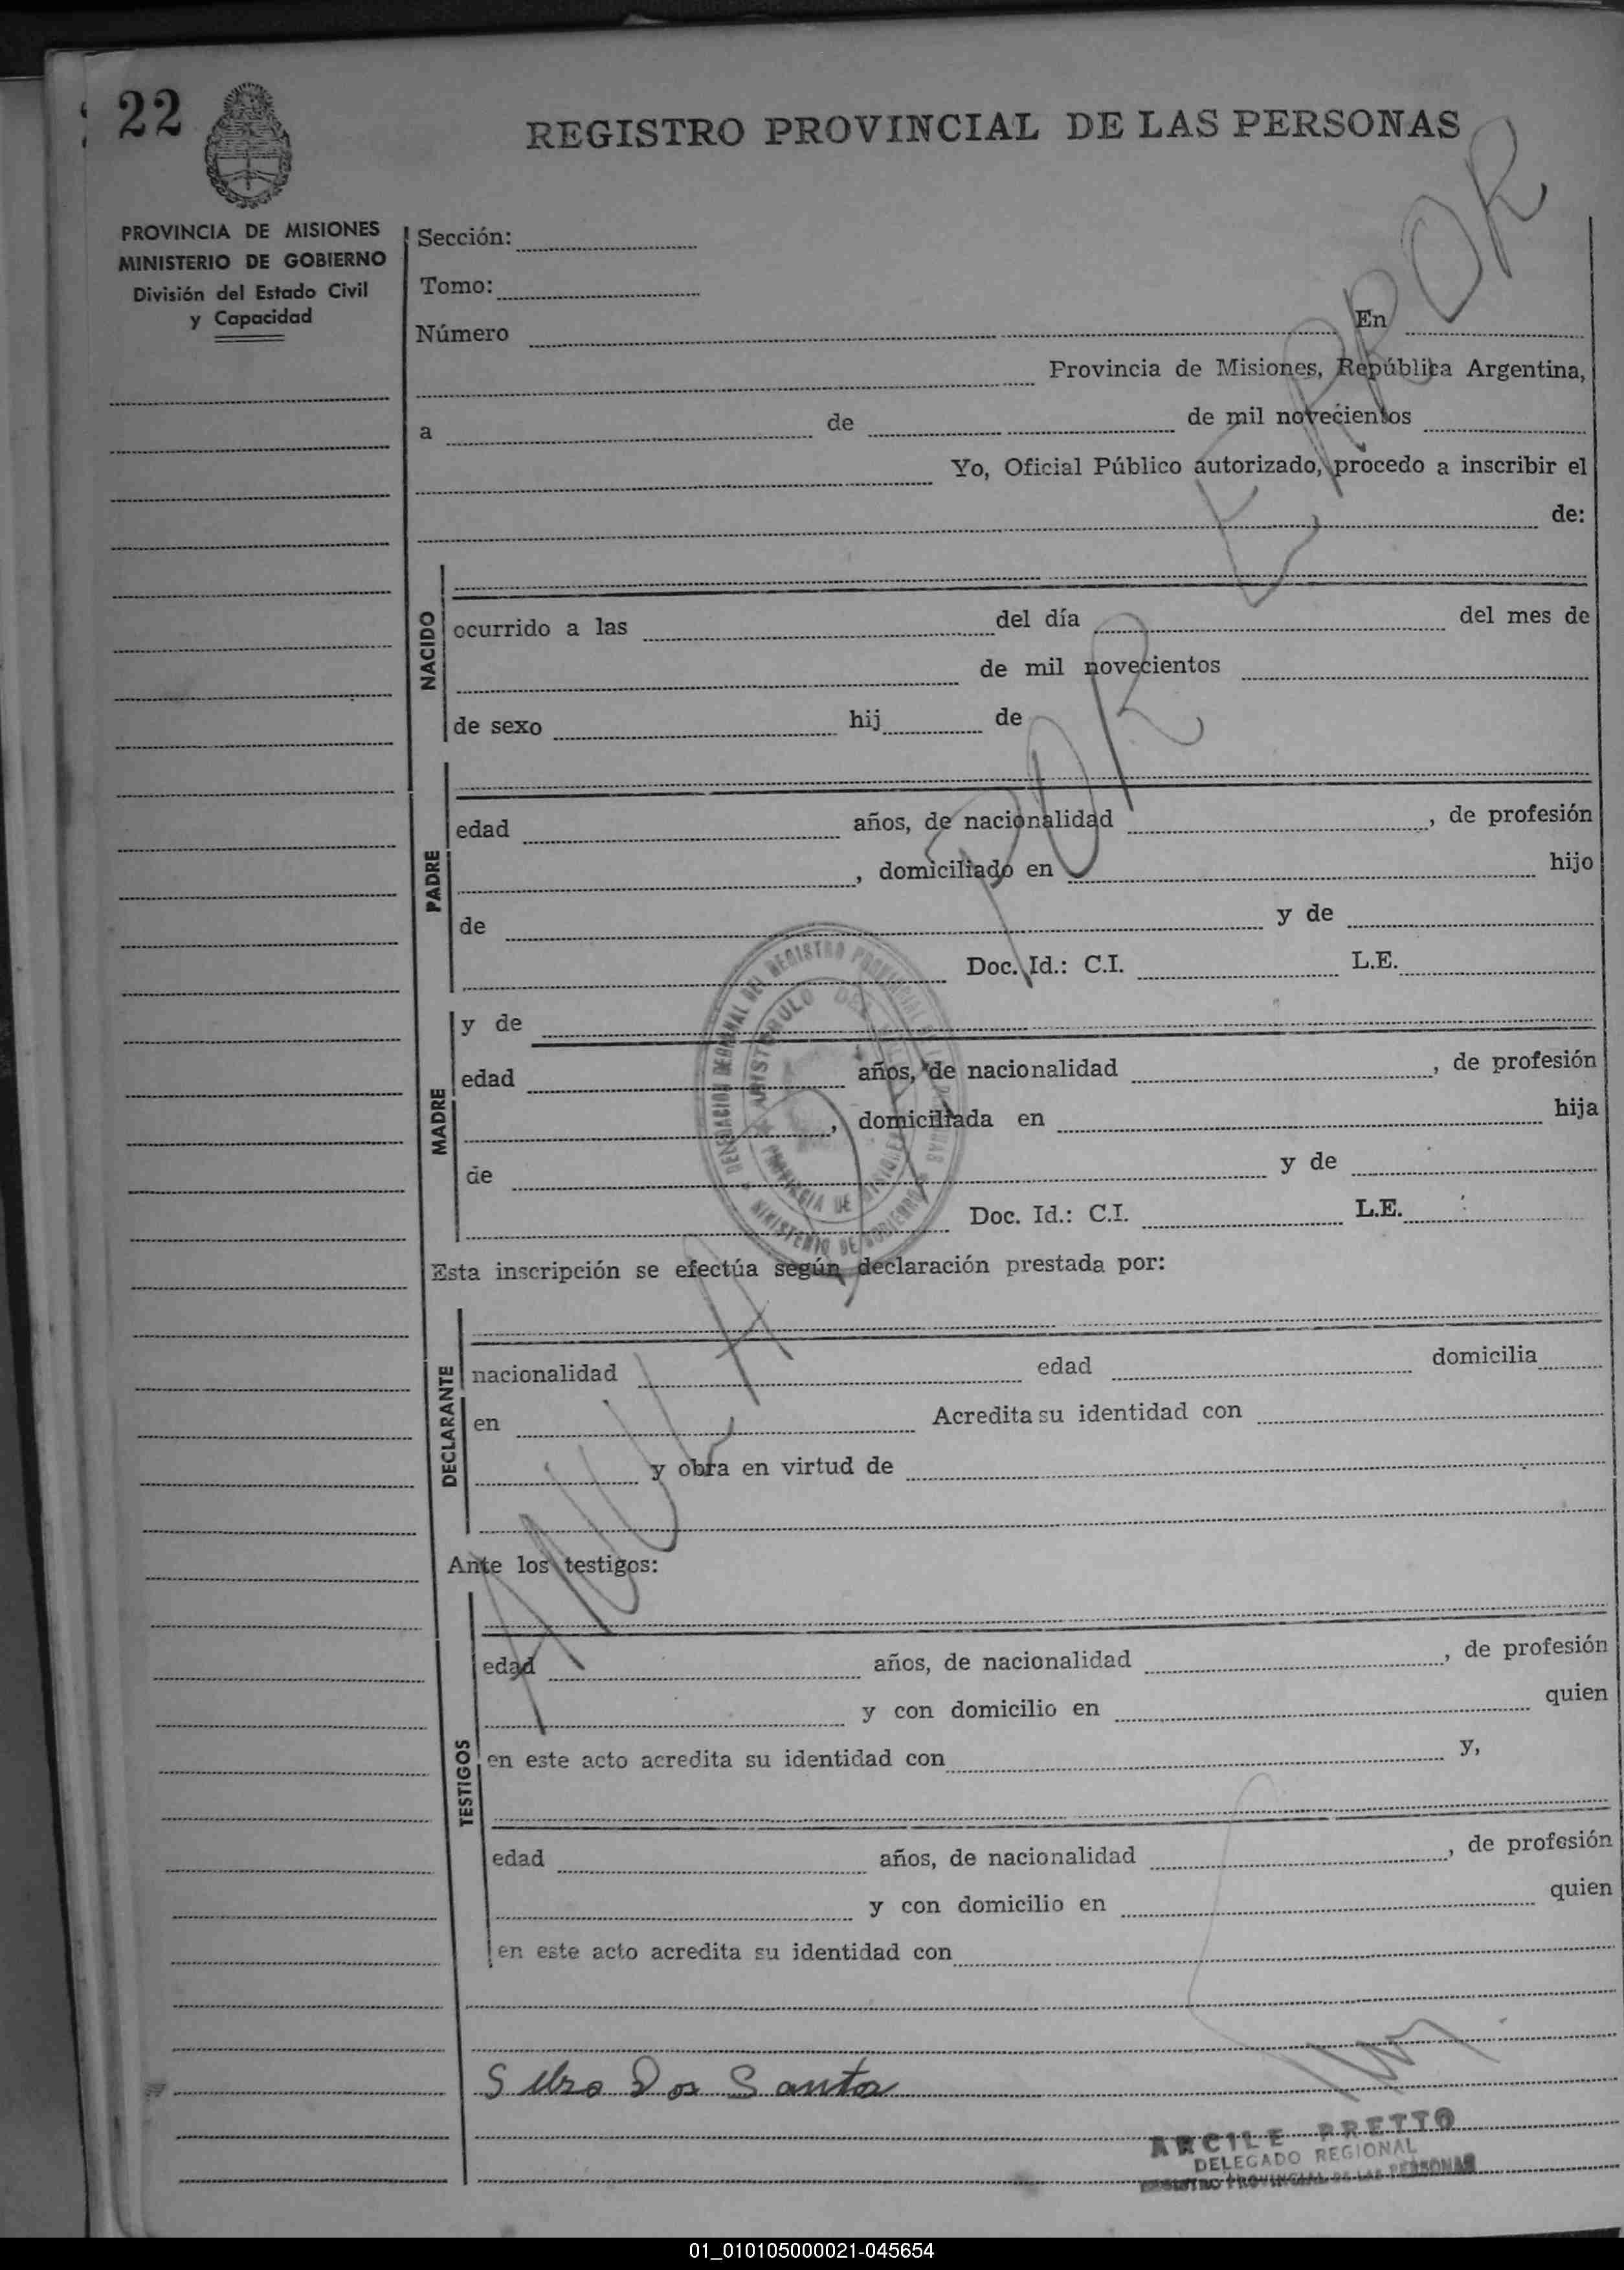 22
REGISTRO PROVINCIAL DE LAS PERSONAS
PROVINCIA DE MISIONES
MINISTERIO DE GOBIERNO
División del Estado Civil
y Capacidad
Sección:
Tomo:
Número En
Provincia de Misiones, República Argentina,
a de de mil novecientos
Yo, Oficial Público autorizado, procedo a inscribir el
de:
NACIDO
ocurrido a las del día del mes de
de mil novecientos
de sexo hij de
PADRE
edad años, de nacionalidad , de profesión
, domiciliado en hijo
de y de
Doc. Id.: C.I. L.E.
MADRE
y de
edad años, de nacionalidad , de profesión
, domiciliada en hija
de y de
Doc. Id.: C.I. L.E.
Esta inscripción se efectúa según declaración prestada por:
DECLARANTE
nacionalidad edad domicilia
en Acredita su identidad con
y obra en virtud de
Ante los testigos:
TESTIGOS
edad años, de nacionalidad , de profesión
y con domicilio en quien
en este acto acredita su identidad con y,
edad años, de nacionalidad , de profesión
y con domicilio en quien
en este acto acredita su identidad con
POR ERROR
DELEGACION REGIONAL DEL REGISTRO PROVINCIAL DE LAS PERSONAS
MINISTERIO DE GOBIERNO
PROVINCIA DE MISIONES
Dos Santos
ARCILE PRETTO
DELEGADO REGIONAL
REGISTRO PROVINCIAL DE LAS PERSONAS
01_010105000021-045654